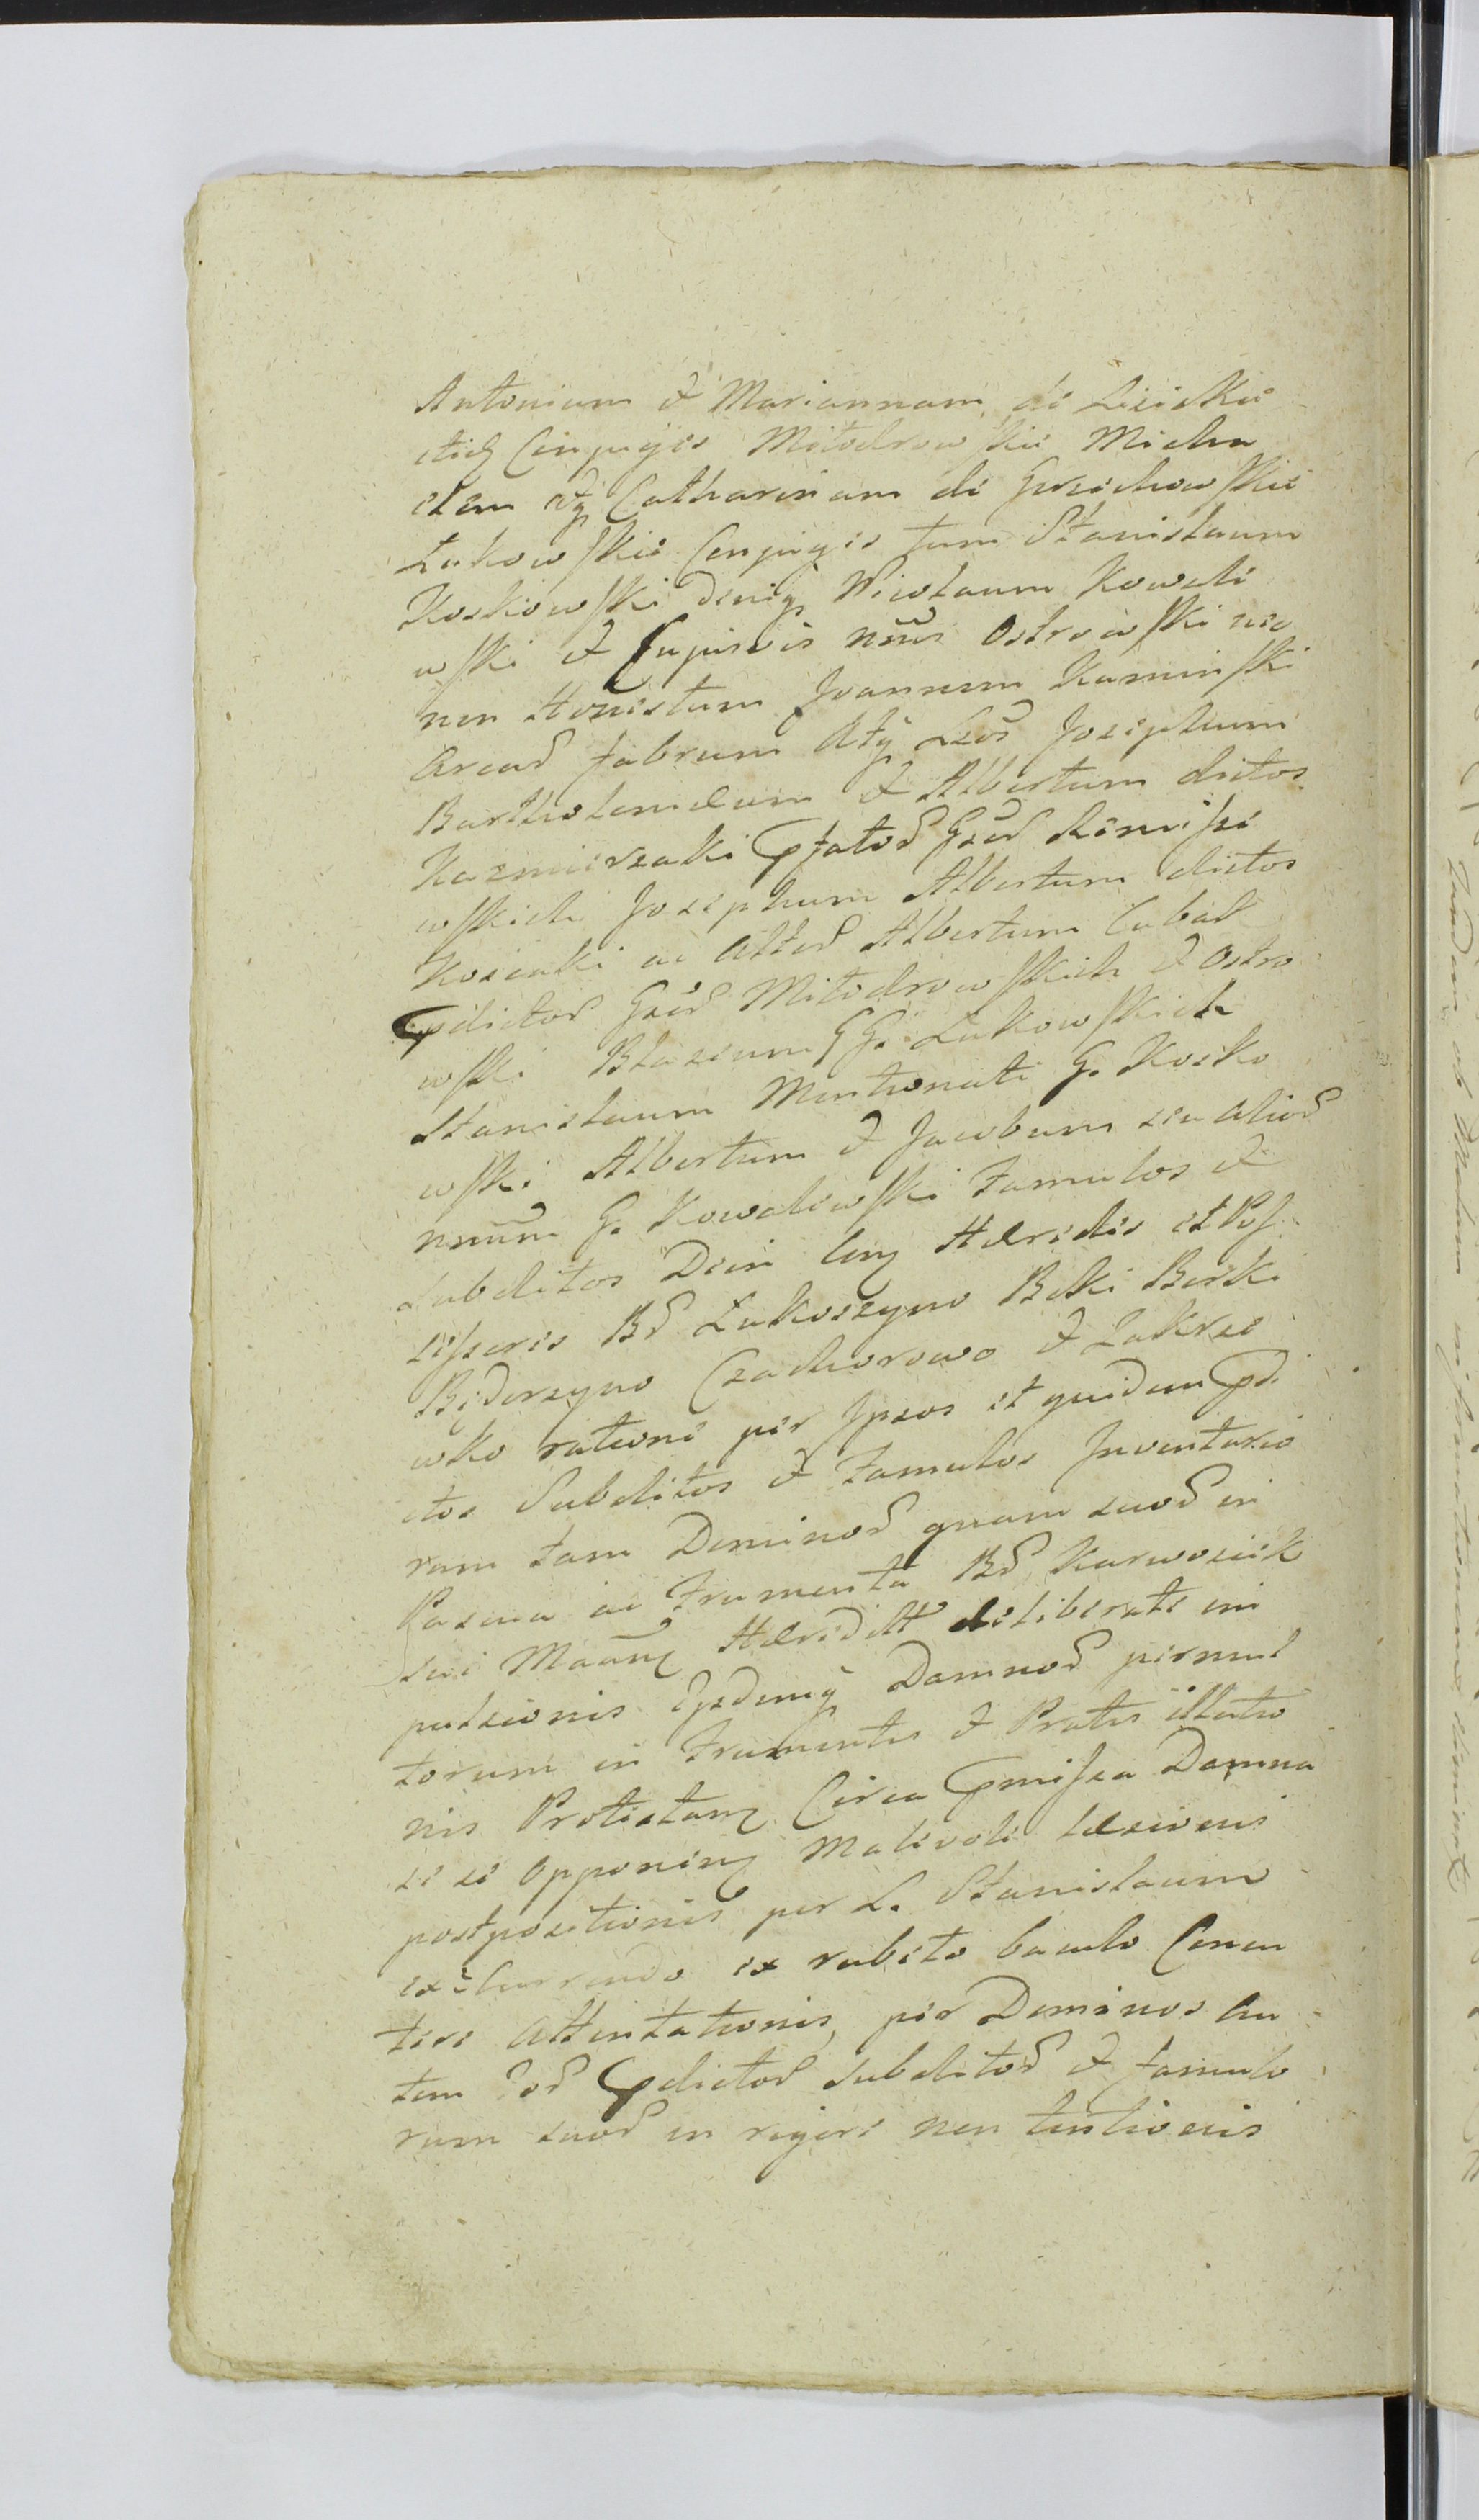 Antonium & Mariannam de Lisickie
Conjuges Mitodrowskie Micha
elem atq Catharinam de Grzichowskie
Łukowskie Conjuges tum Stanislaum
Koskowski deniq Nicolaum Kowale
wski & Cujusvis nnis Ostrowski nec
non Honestum Joannem Kaminski
Arcar fabrum Atq Lros Josephum
Bartholomeum & Albertum dictos
Kazmierzaki pfator Gser
wskich Josephum Albertum dictos
Kosiaki ac alter Albertum Cabak
pdictor Gser Mitodrowskich & Ostro
wski Blasium GG. Łukowskich
Stanislaum Mentionati G. Kosko
wski Albertum & Jacobum seu alior
nnum G. Kowalewski Famulos &
subditos Dein Hæredis et Poss
essoris Br Łukoszyno Bolki Borki
Czachorowo & Zakrze
wko ratione per Ipsos et quidem pdi
ctos Subditos & Famulos Inventario
rum tam Dominor quam suor in
Pascua ac Frumenta Br Karwosiek
sui Hæredit deliberate im
pulsionis Damnor permul
torum in Frumentis & Pratis illatio
nis Circa pmissa Damna
se se opponen Malevole læsionis
postpositionis per L. Stanislaum
ex rubito baculo Concu
tere Attentationis, per Dominos au
tem pdictor subditor & famulo
rum suor in rigore non tentionis